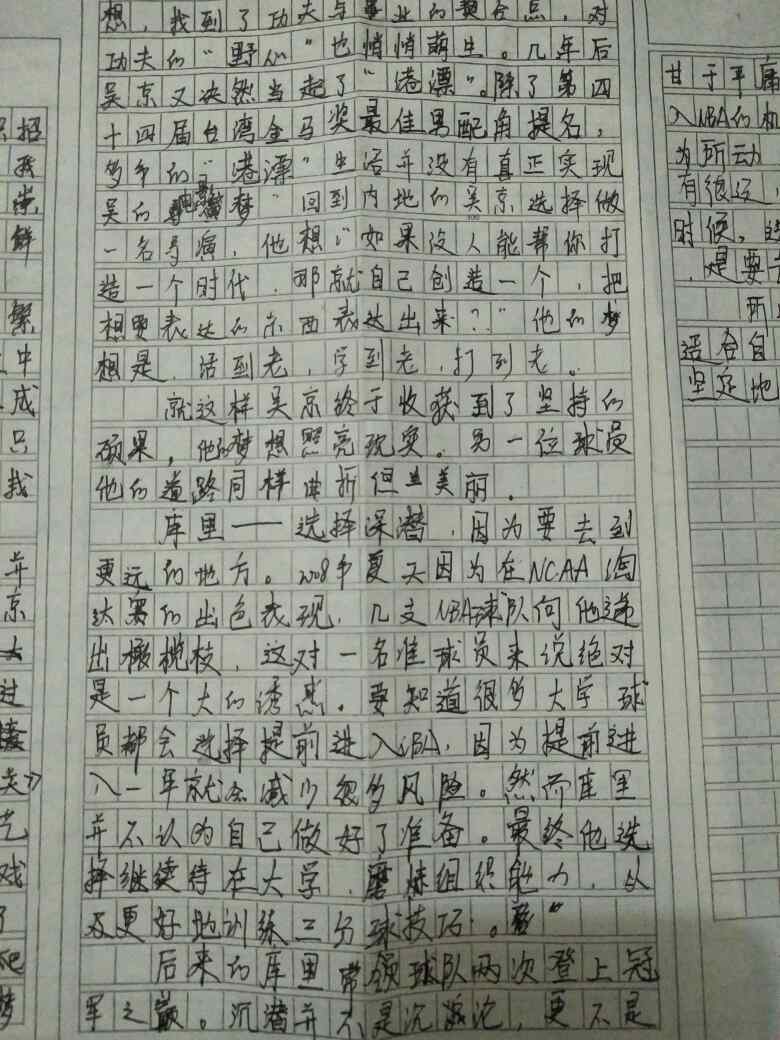 只招
我
崇
鲜
繁
中
成
只
找
并
京
大
过
关》
艺
戏
了
吧
梦
想，找到了功夫与事业的契合点，对
功夫的“野心”也悄悄萌生。几年后
吴京又决然当起了“港漂”。除了第四
十四届台湾金马奖最佳男配角提名，
多年的“港漂”生活并没有真正实现
吴的梦”回到内地的吴京选择做
一名导演，他想：“如果没人能帮你打
造一个时代，那就自己创造一个，把
想要表达的东西表达出来？”他的梦
想是，活到老，学到老，打到老。
就这样吴京终于收获到了坚持的
硕果，他的梦想照亮现实。另一位球员
他的道路同样曲折但且美丽。
库里——选择深潜，因为要去到
更远的地方。2008年夏天因为在NCAA淘
汰赛的出色表现，几支NBA球队向他递
出橄榄枝，这对一名准球员来说绝对
是一个大的诱惑。要知道很多大学球
员都会选择提前进入NBA，因为提前进
入一年就会减少很多风险。然而库里
并不认为自己做好了准备。最终他选
择继续待在大学，磨炼组织能力，以
及更好地训练三分球技巧。
后来的库里带领球队两次登上冠
军之巅。沉潜并不是沉沦，更不是
甘于平庸
入NBA的机
为所动
有很远，
时候，这
，是要
所
适合自
坚定地